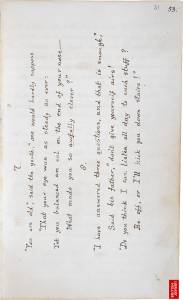 53.
7.
"You are old," said the youth, "one would hardly suppose
That your eye was as steady as ever:
Yet you balanced an eel on the end of your nose—
What made you so awfully clever?"
8.
"I have answered three questions, and that is enough,"
Said his father, "don't give yourself airs!
Do you think I can listen all day to such stuff?
Be off, or I'll kick you down stairs!"
BRITISH LIBRARY